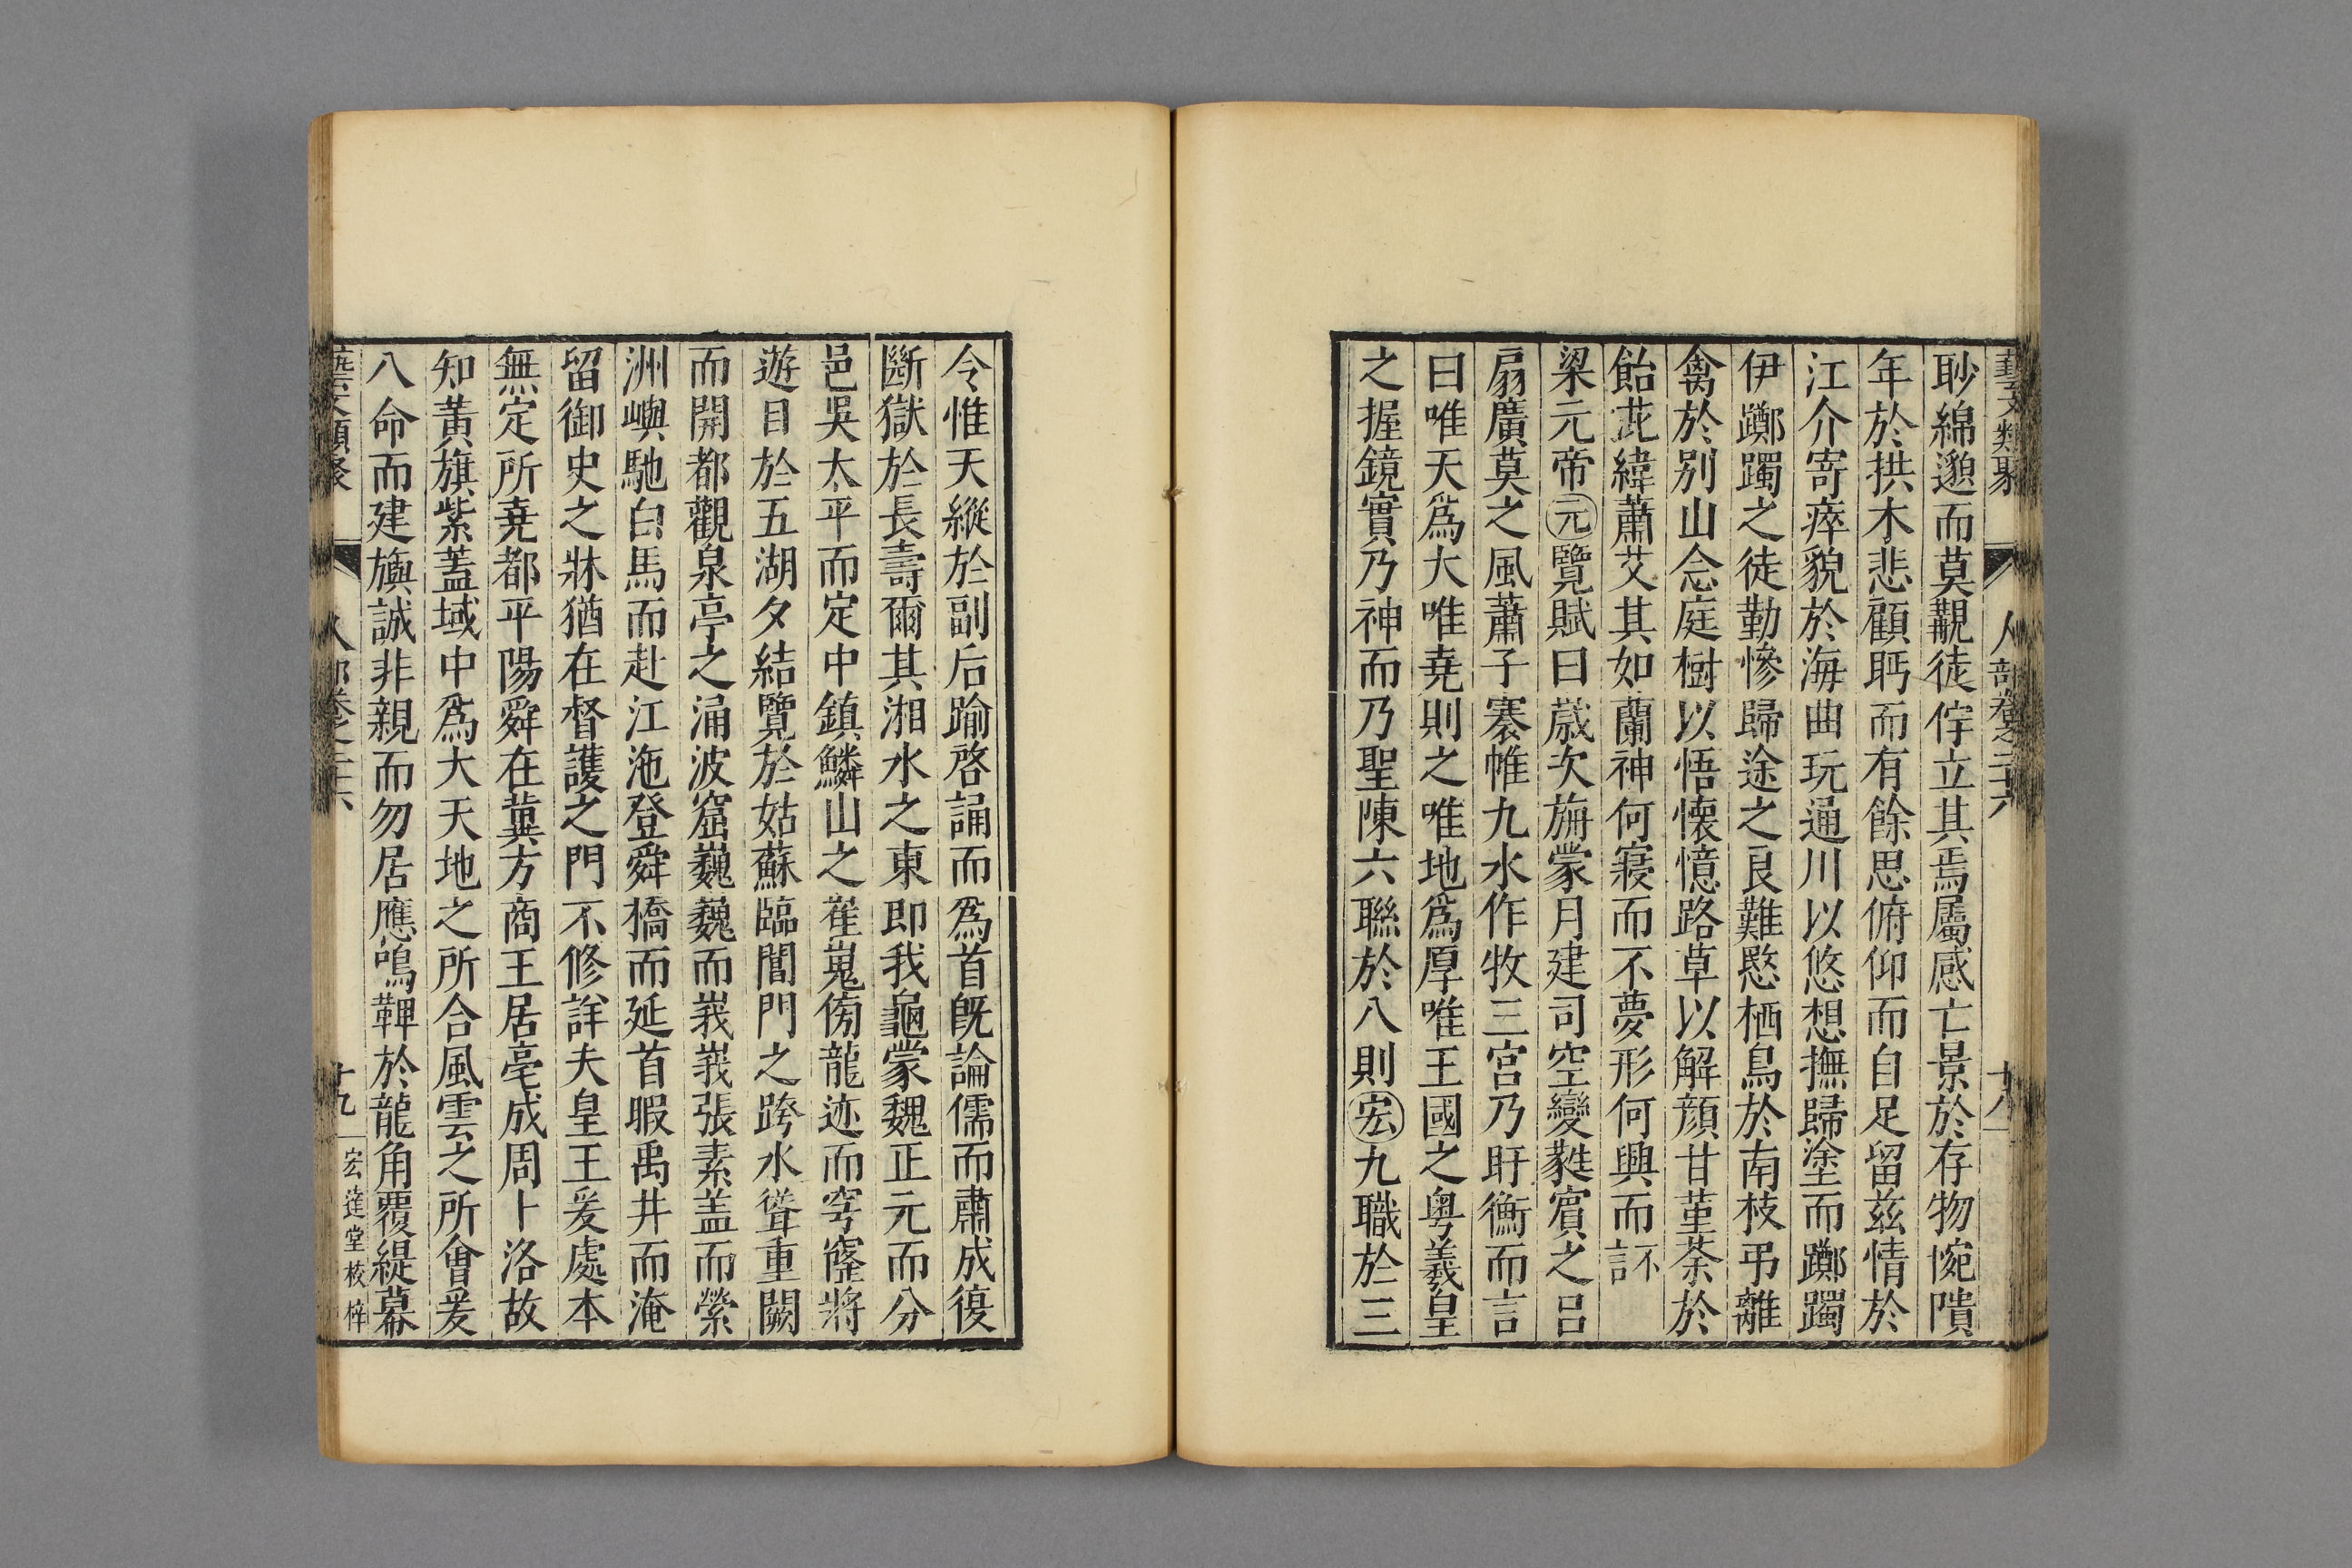 藝文類聚 人部卷之二十六 十八
眇綿邈而莫覯徒佇立其焉屬感亡景於存物惋隤
年於拱木悲顧眄而有餘思俯仰而自足留兹情於
江介寄瘁貌於海曲玩通川以悠想撫歸塗而躑躅
伊躑躅之徒勤慘歸途之良難愍栖鳥於南枝弔離
禽於别山念庭樹以悟懷憶路草以解顔甘堇荼於
飴芘緯蕭艾其如蘭神何寢而不夢形何興而不言
梁元帝元覽賦曰歲次旃蒙月建司空變蕤賓之吕
扇廣莫之風蕭子褰帷九水作牧三宫乃盱衡而言
曰唯天爲大唯堯則之唯地爲厚唯王國之粤羲皇
之握鏡實乃神而乃聖陳六聯於八則宏九職於三
令惟天縱於副后踰啓誦而爲首旣論儒而肅成復
斷獄於長壽爾其湘水之東即我龜蒙魏正元而分
邑吳太平而定中鎮鱗山之嶊嵬傍龍迹而穹窿將
遊目於五湖夕結覽於姑蘇臨閶門之跨水聳重闕
而開都觀泉亭之涌波窟巍巍而峩峩張素盖而縈
洲嶼馳白馬而赴江沲登舜橋而延首暇禹井而淹
留御史之牀猶在督護之門不修詳夫皇王爰處本
無定所堯都平陽舜在冀方商王居亳成周卜洛故
知黃旗紫蓋域中爲大天地之所合風雲之所會爰
八命而建旟誠非親而勿居應鳴鞞於龍角覆緹幕
藝文類聚 人部卷之二十六 十九 宏達堂校梓